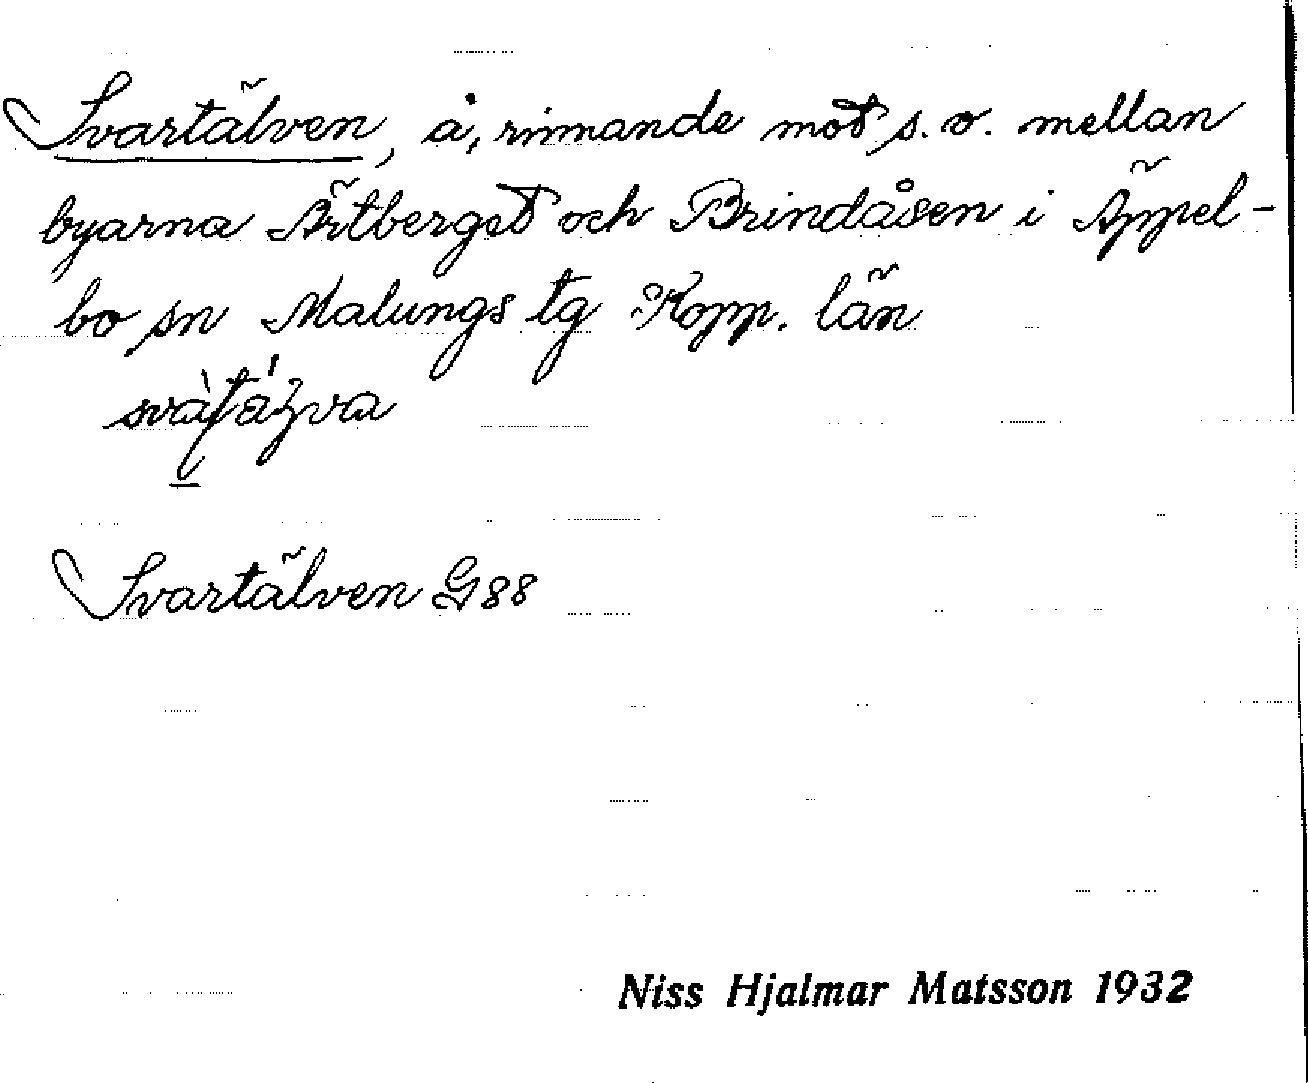 Svartälven, å, rinnande mot s. o. mellan
byarna Ärtberget och Brindåsen i Äppel-
bo sn Malungs tg Kopp. län
Svartälven G88
Niss Hjalmar Matsson 1932